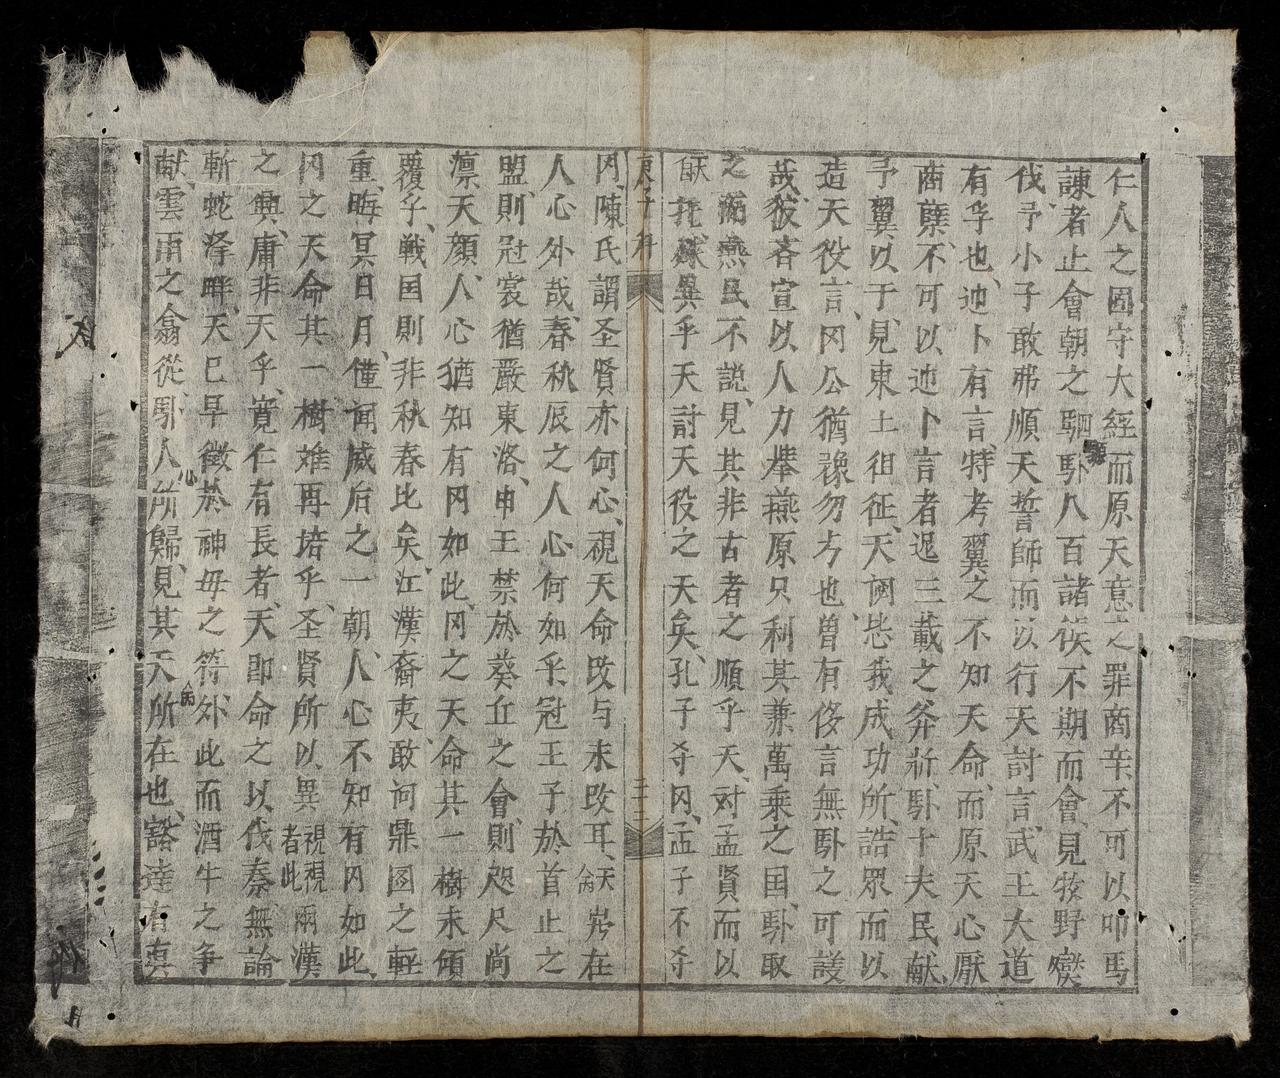 仁人之固守大經而原天意之罪商辛不可以叩馬
諫者止會朝之駟馭八百諸侯不期而會見牧野爕
伐予小子敢弗順天誓師而以行天討言武王大道
有孚也迪卜有言特考翼之不知天命而原天心厭
商孽不可以迪卜言者遲三載之斧斨馭十夫民獻
予翼以于見東土徂征天閟毖我成功所誥眾而以
造天役言冈公猶豫勿亐也曽有侈言無馭之可謏
哉彼吝宣以人力舉燕原只利其兼萬乘之囯馭取
之瀾燕民不說見其非古者之順乎天对孟賢而以
猷托緣異乎天討天役之天矣孔子夺冈孟子不夺
冈陳氏謂圣賢亦何心視天命改与未改耳天命㞕在
人心外哉春秋辰之人心何如乎冠王子於首止之
盟則冠裳猶嚴東洛申王禁於葵丘之會則咫尺尚
凛天顔人心猶知有冈如此冈之天命其一樹未傾
覆乎戦囯則非秋春比矣江漢裔夷敢问鼎圖之軽
重晦冥日月僅闻威后之一朝人心不知有冈如此
冈之天命其一樹难再培乎圣賢所以異者此視視兩漢
之興庸非天乎寛仁有長者天即命之以伐秦無論
斬蛇澤畔天巳早徵於神毋之符外此而酒牛之争
献雲雨之翕從馭人心所歸見其天所在也豁達有真